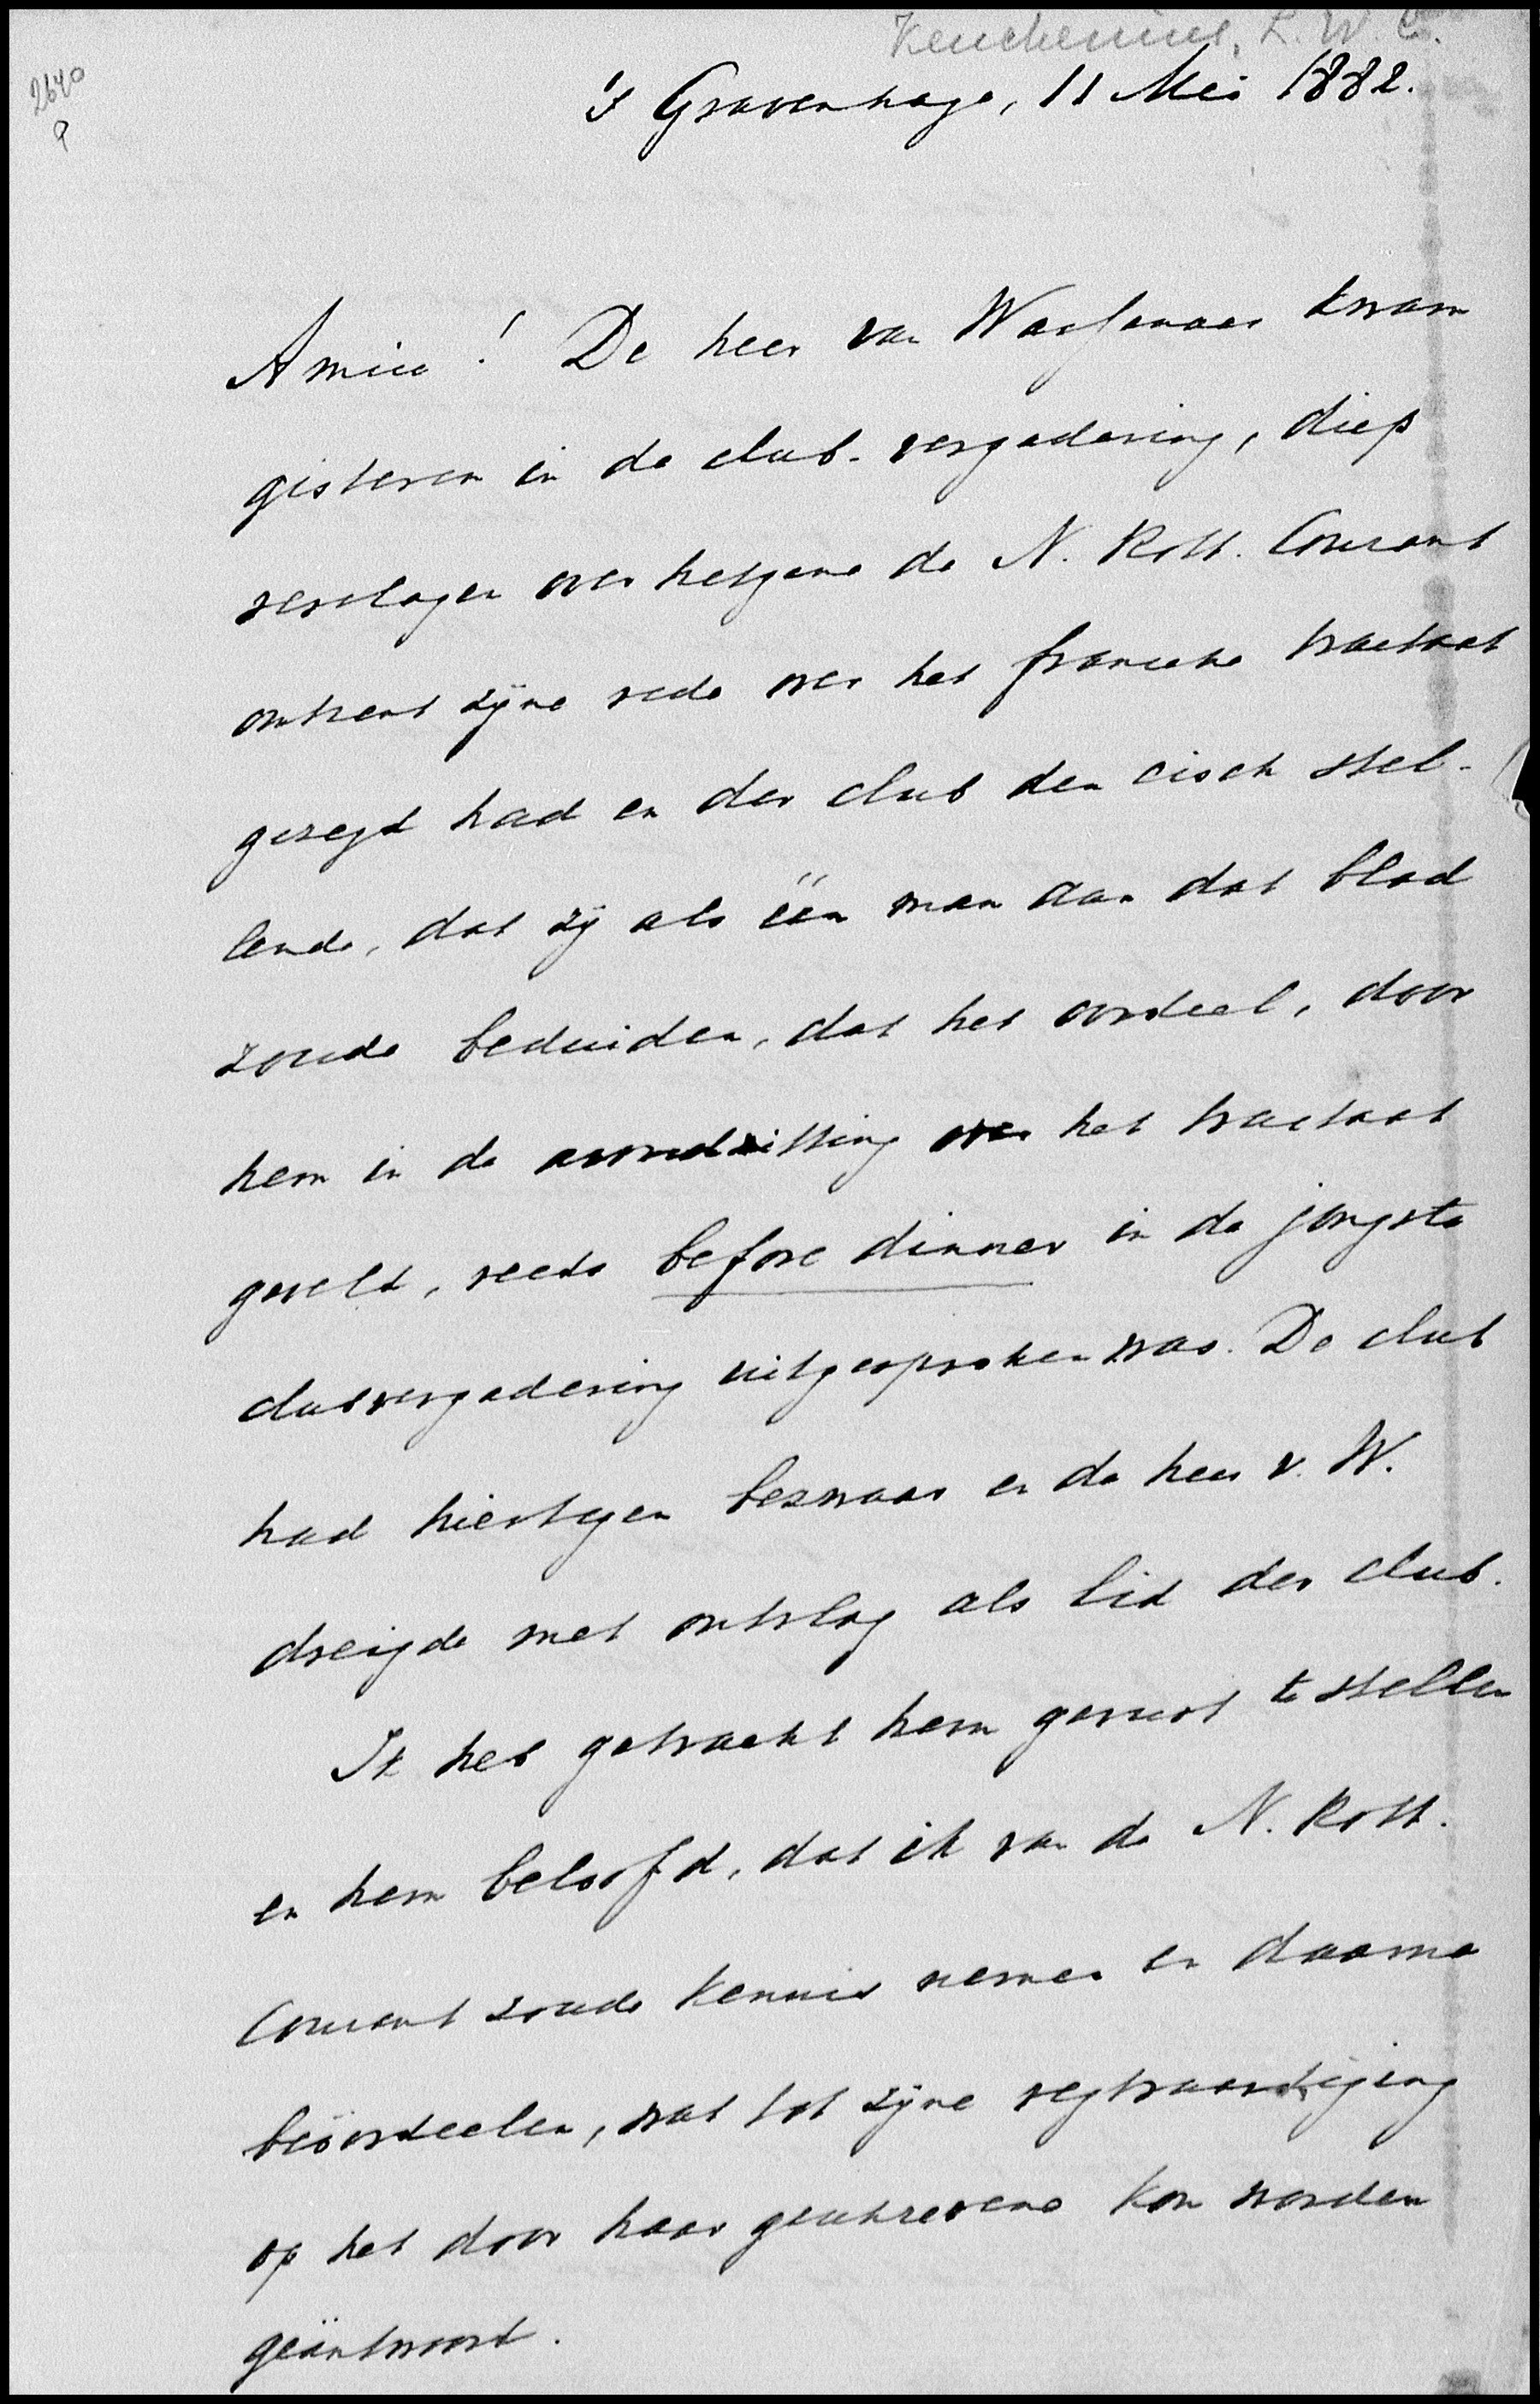 Keuchenius, L.W.C.
2640
P
's Gravenhage, 11 Mei 1882.
Amice! De heer van Wassenaar kwam
gisteren in de club-vergadering, diep
verslagen over hetgene de N. Rott. Courant
omtrent zijne rede over het fransche tractaat
gezegd had en der club den eisch stel-
lende, dat zij als één man aan dat blad
zoude beduiden, dat het oordeel, door
hem in de avondzitting over het tractaat
geveld, reeds before dinner in de jongste
clubvergadering uitgesproken was. De club
had hiertegen bezwaar en de heer v. W.
dreigde met ontslag als lid der club.
Ik heb getracht hem gerust te stellen
en hem beloofd, dat ik van de N. Rott.
Courant zoude kennis nemen en daarna
beöordeelen, wat tot zijne regtvaardiging
op het door haar geschrevene kon worden
geäntwoord.